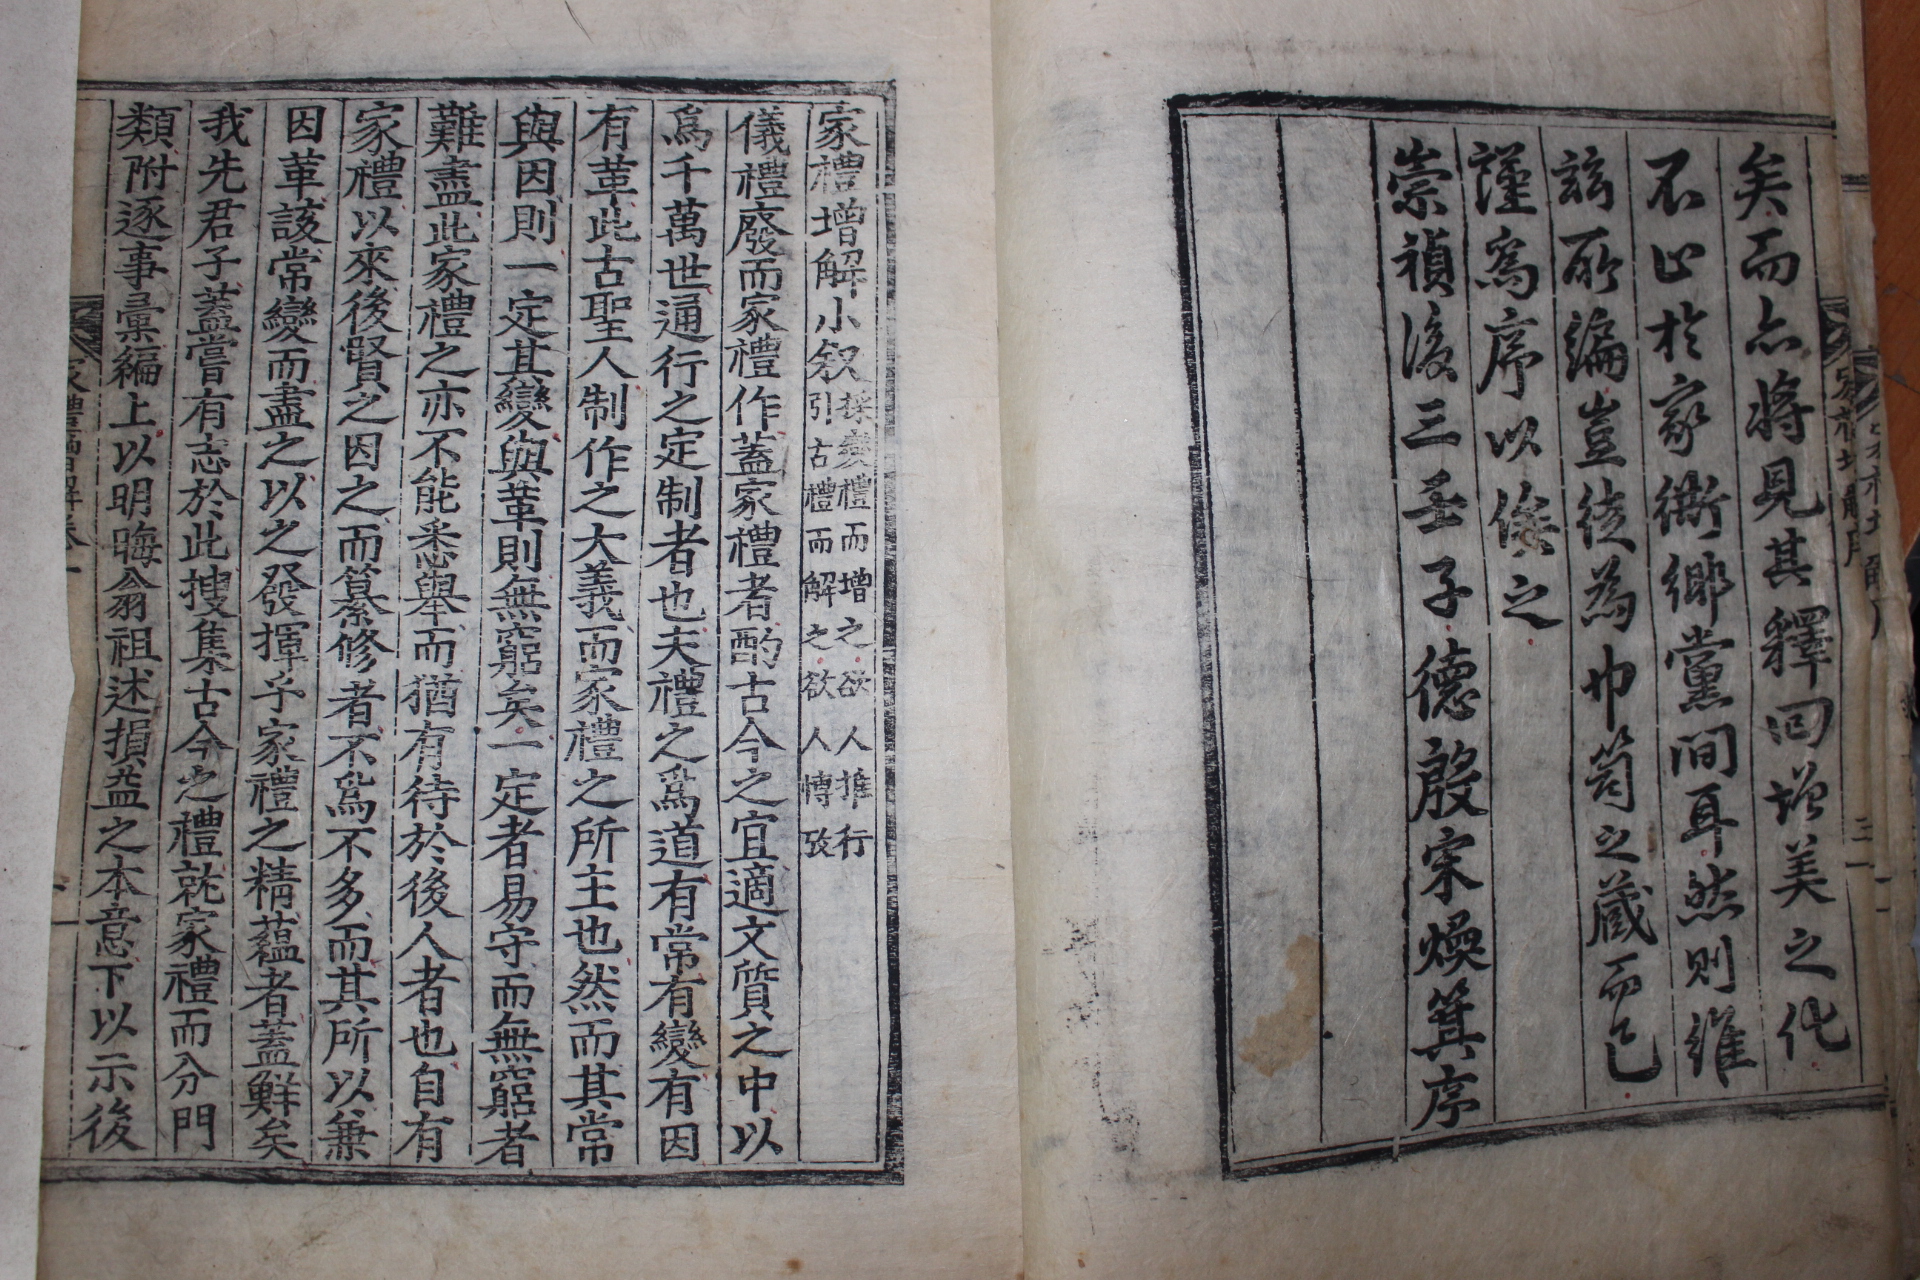 矣而亦將見其釋回增美之化
不止於家衖鄉黨間耳然則維
玆所編豈徒為巾笥之藏而已
謹為序以俟之
崇禎後三壬子德殷宋煥箕序
家禮增解序
三
家禮增解小叙 採變禮而增之欲人推行
引古禮而解之欲人博攷
儀禮廢而家禮作蓋家禮者酌古今之宜適文質之中以
爲千萬世通行之定制者也夫禮之爲道有常有變有因
有革此古聖人制作之大義而家禮之所主也然而其常
與因則一定其變與革則無窮矣一定者易守而無窮者
難盡此家禮之亦不能悉擧而猶有待於後人者也自有
家禮以來後賢之因之而纂修者不爲不多而其所以兼
因革該常變而盡之以之發揮乎家禮之精蘊者蓋鮮矣
我先君子蓋嘗有志於此搜集古今之禮就家禮而分門
類附逐事彙編上以明晦翁祖述損益之本意下以示後
家禮增解卷一
一